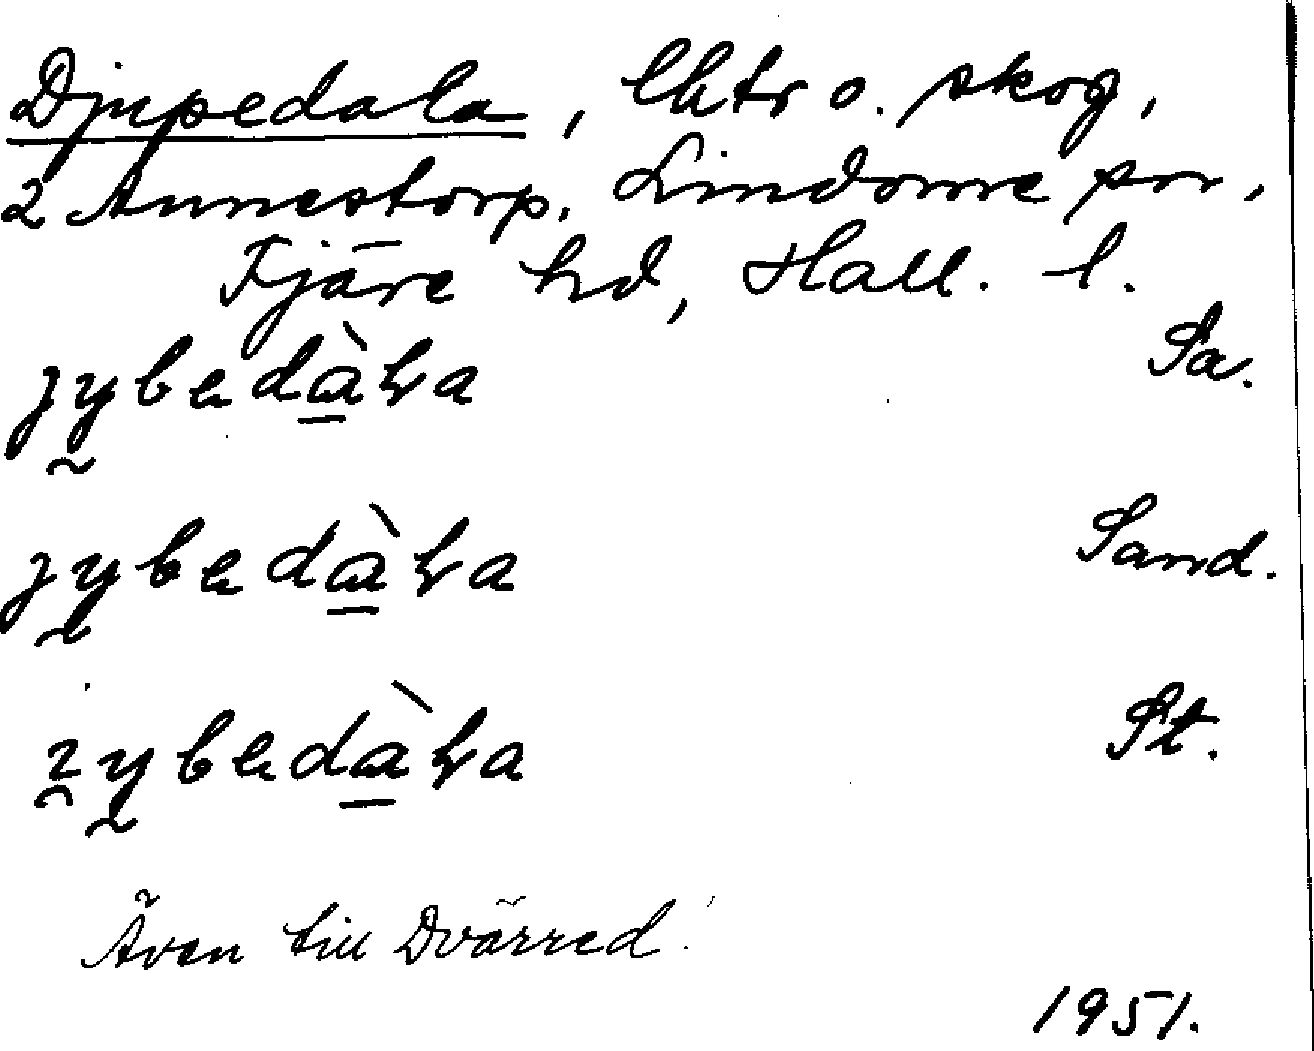 Djupedala, lhtr o. skog,
2 Annestorp. Lindome sn,
Fjäre hd, Hall. l.
jybedàɫa Sa.
jybedàɫa Sand.
zybedàɫa St.
Även till Dvärred.
1951.